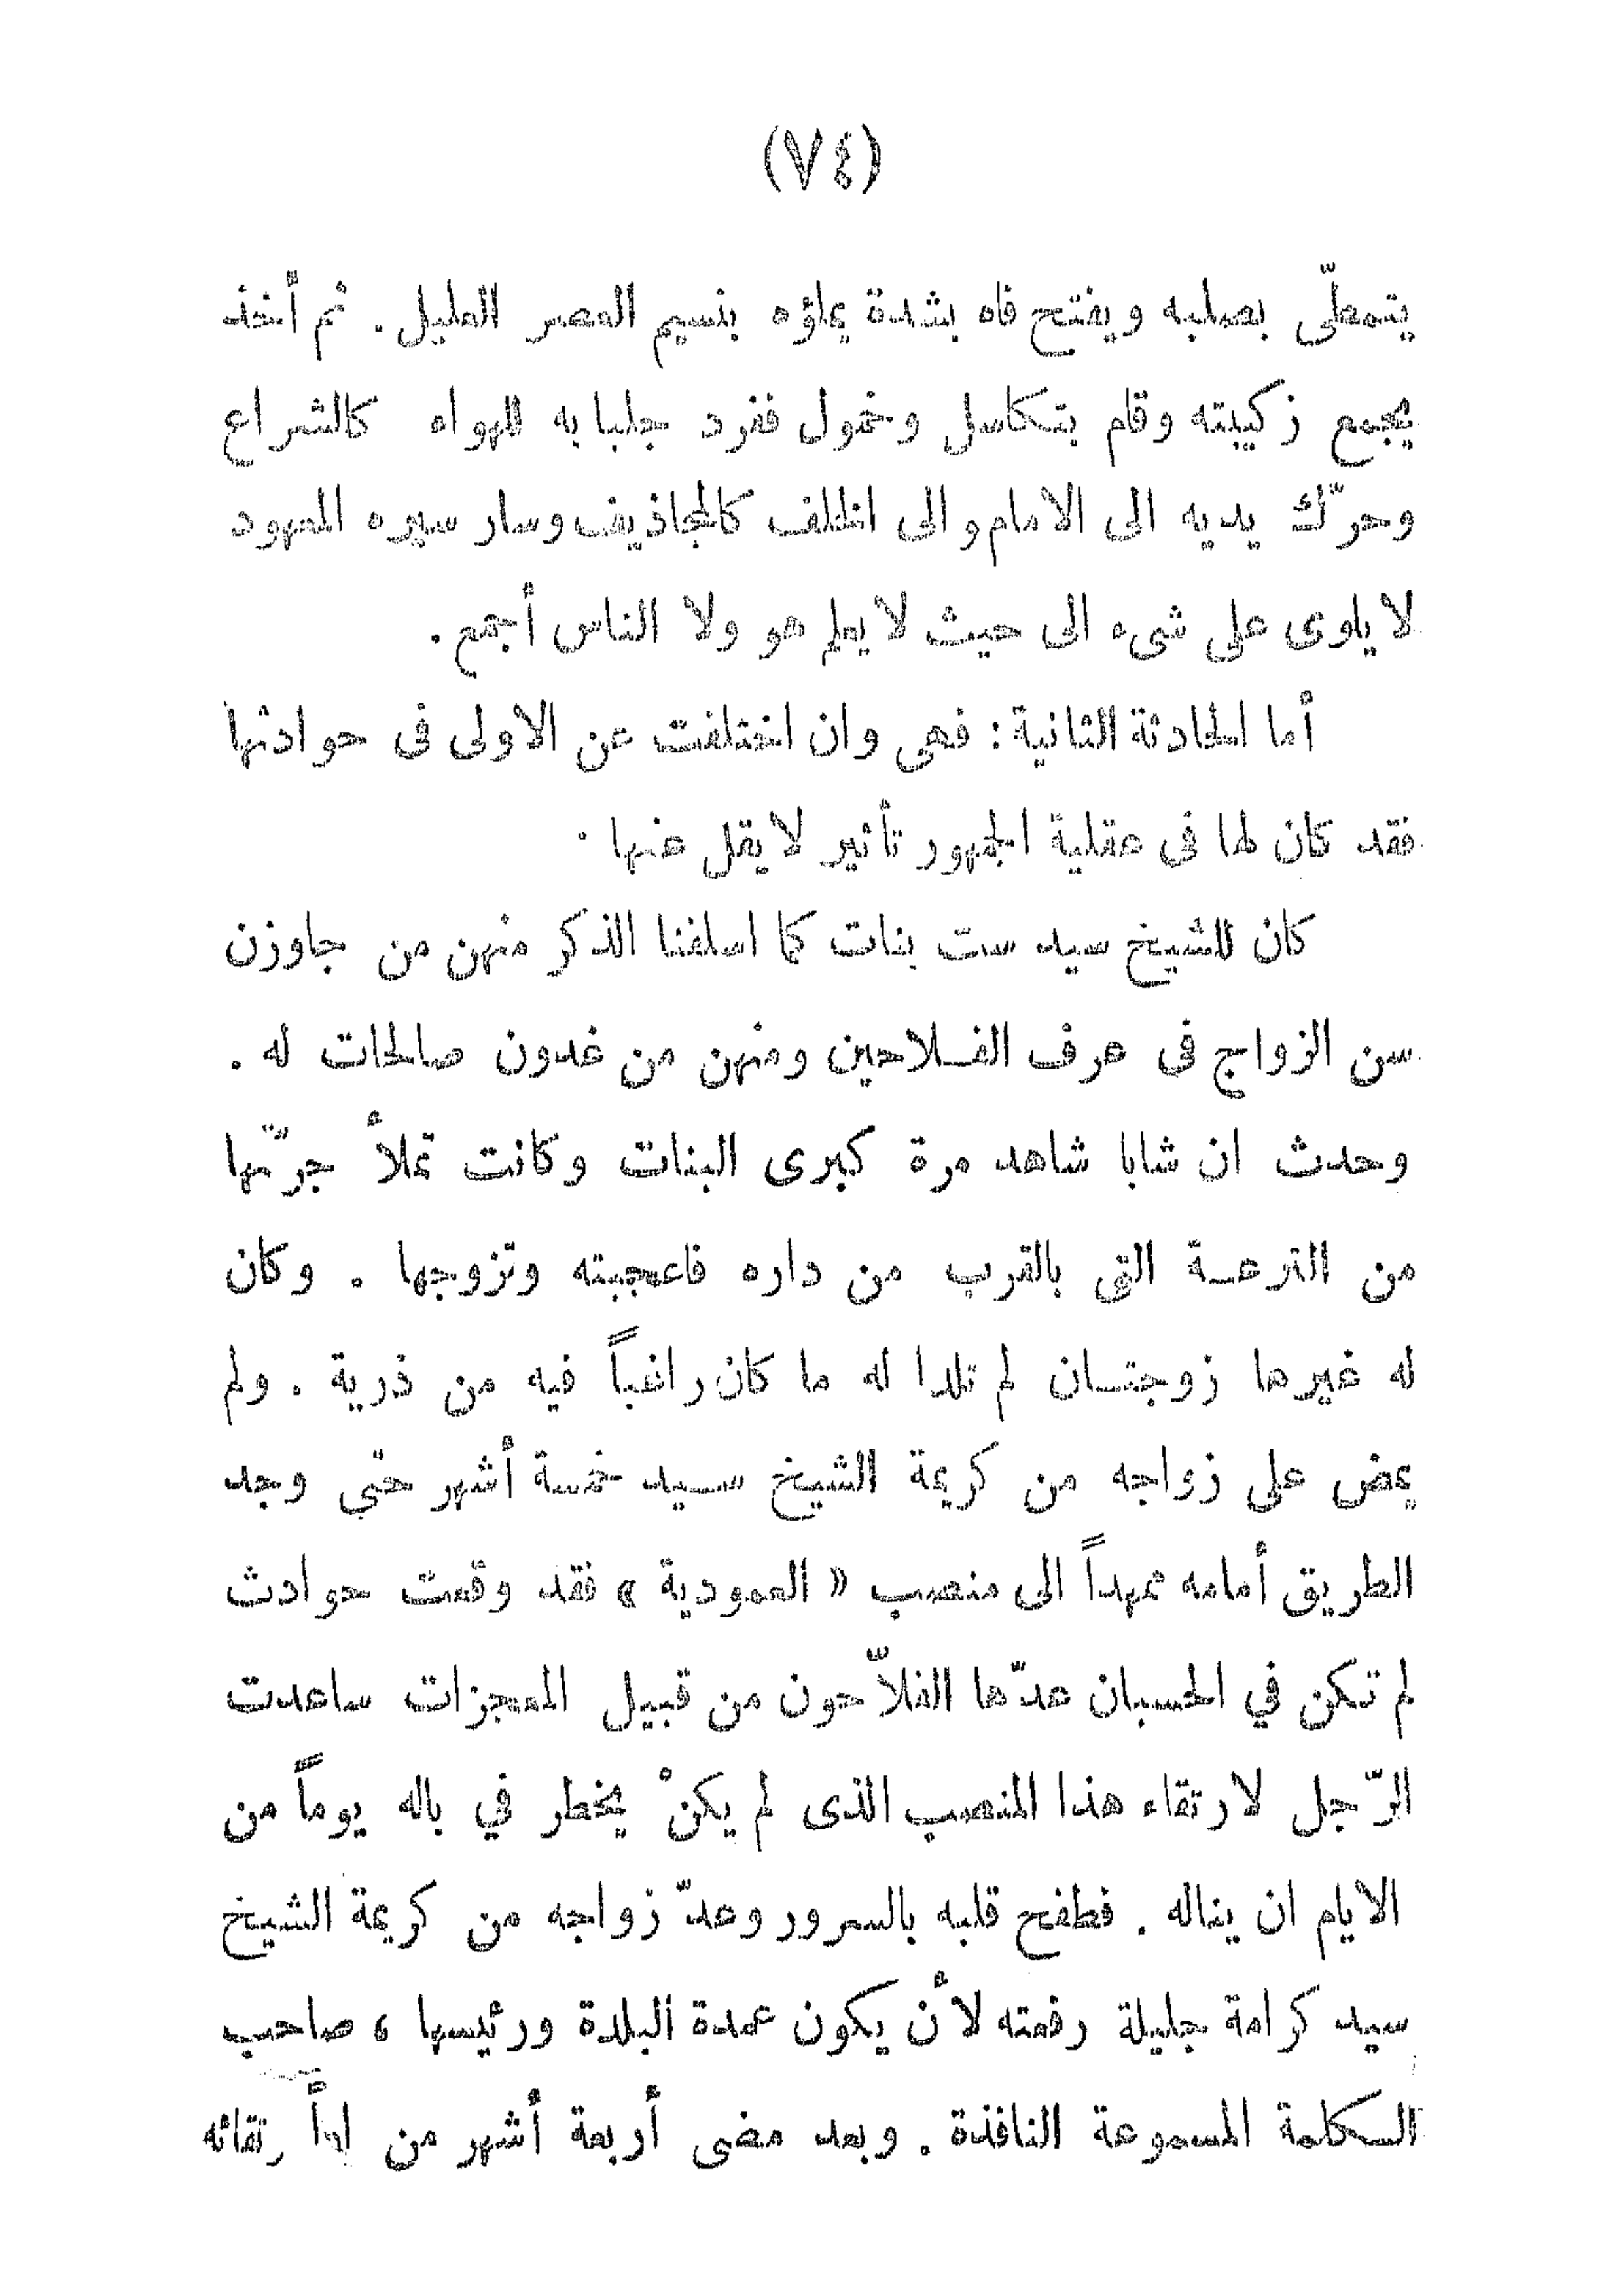 (٧٤)
يتمطّى بصلبه ويفتح فاه بشدة يملؤه بنسيم العصر العليل. ثم أخذ
يجمع زكيبته وقام بتكاسل وخمول ففرد جلبابه للهواء كالشراع
وحرّك يديه الى الامام والى الخلف كالمجاذيف وسار سيره المعهود
لا يلوى على شىء الى حيث لا يعلم هو ولا الناس أجمع.
أما الحادثة الثانية: فهى وان اختلفت عن الاولى فى حوادثها
فقد كان لها فى عقلية الجمهور تأثير لا يقل عنها.
كان للشيخ سيد ست بنات كما اسلفنا الذكر منهن من جاوزن
سن الزواج فى عرف الفلاحين ومنهن من غدون صالحات له.
وحدث ان شابا شاهد مرة كبرى البنات وكانت تملأ جرّتها
من الترعة التى بالقرب من داره فاعجبته وتزوجها. وكان
له غيرها زوجتان لم تلدا له ما كان راغباً فيه من ذرية. ولم
يمض على زواجه من كريمة الشيخ سيد خمسة أشهر حتى وجد
الطريق أمامه ممهداً الى منصب «العمودية» فقد وقعت حوادث
لم تكن في الحسبان عدّها الفلاّحون من قبيل المعجزات ساعدت
الرّجل لارتقاء هذا المنصب الذى لم يكنْ يخطر في باله يوماً من
الايام ان يناله. فطفح قلبه بالسرور وعدّ زواجه من كريمة الشيخ
سيد كرامة جليلة رفعته لأن يكون عمدة البلدة ورئيسها، صاحب
الكلمة المسموعة النافذة. وبعد مضى أربعة أشهر من رتقائه